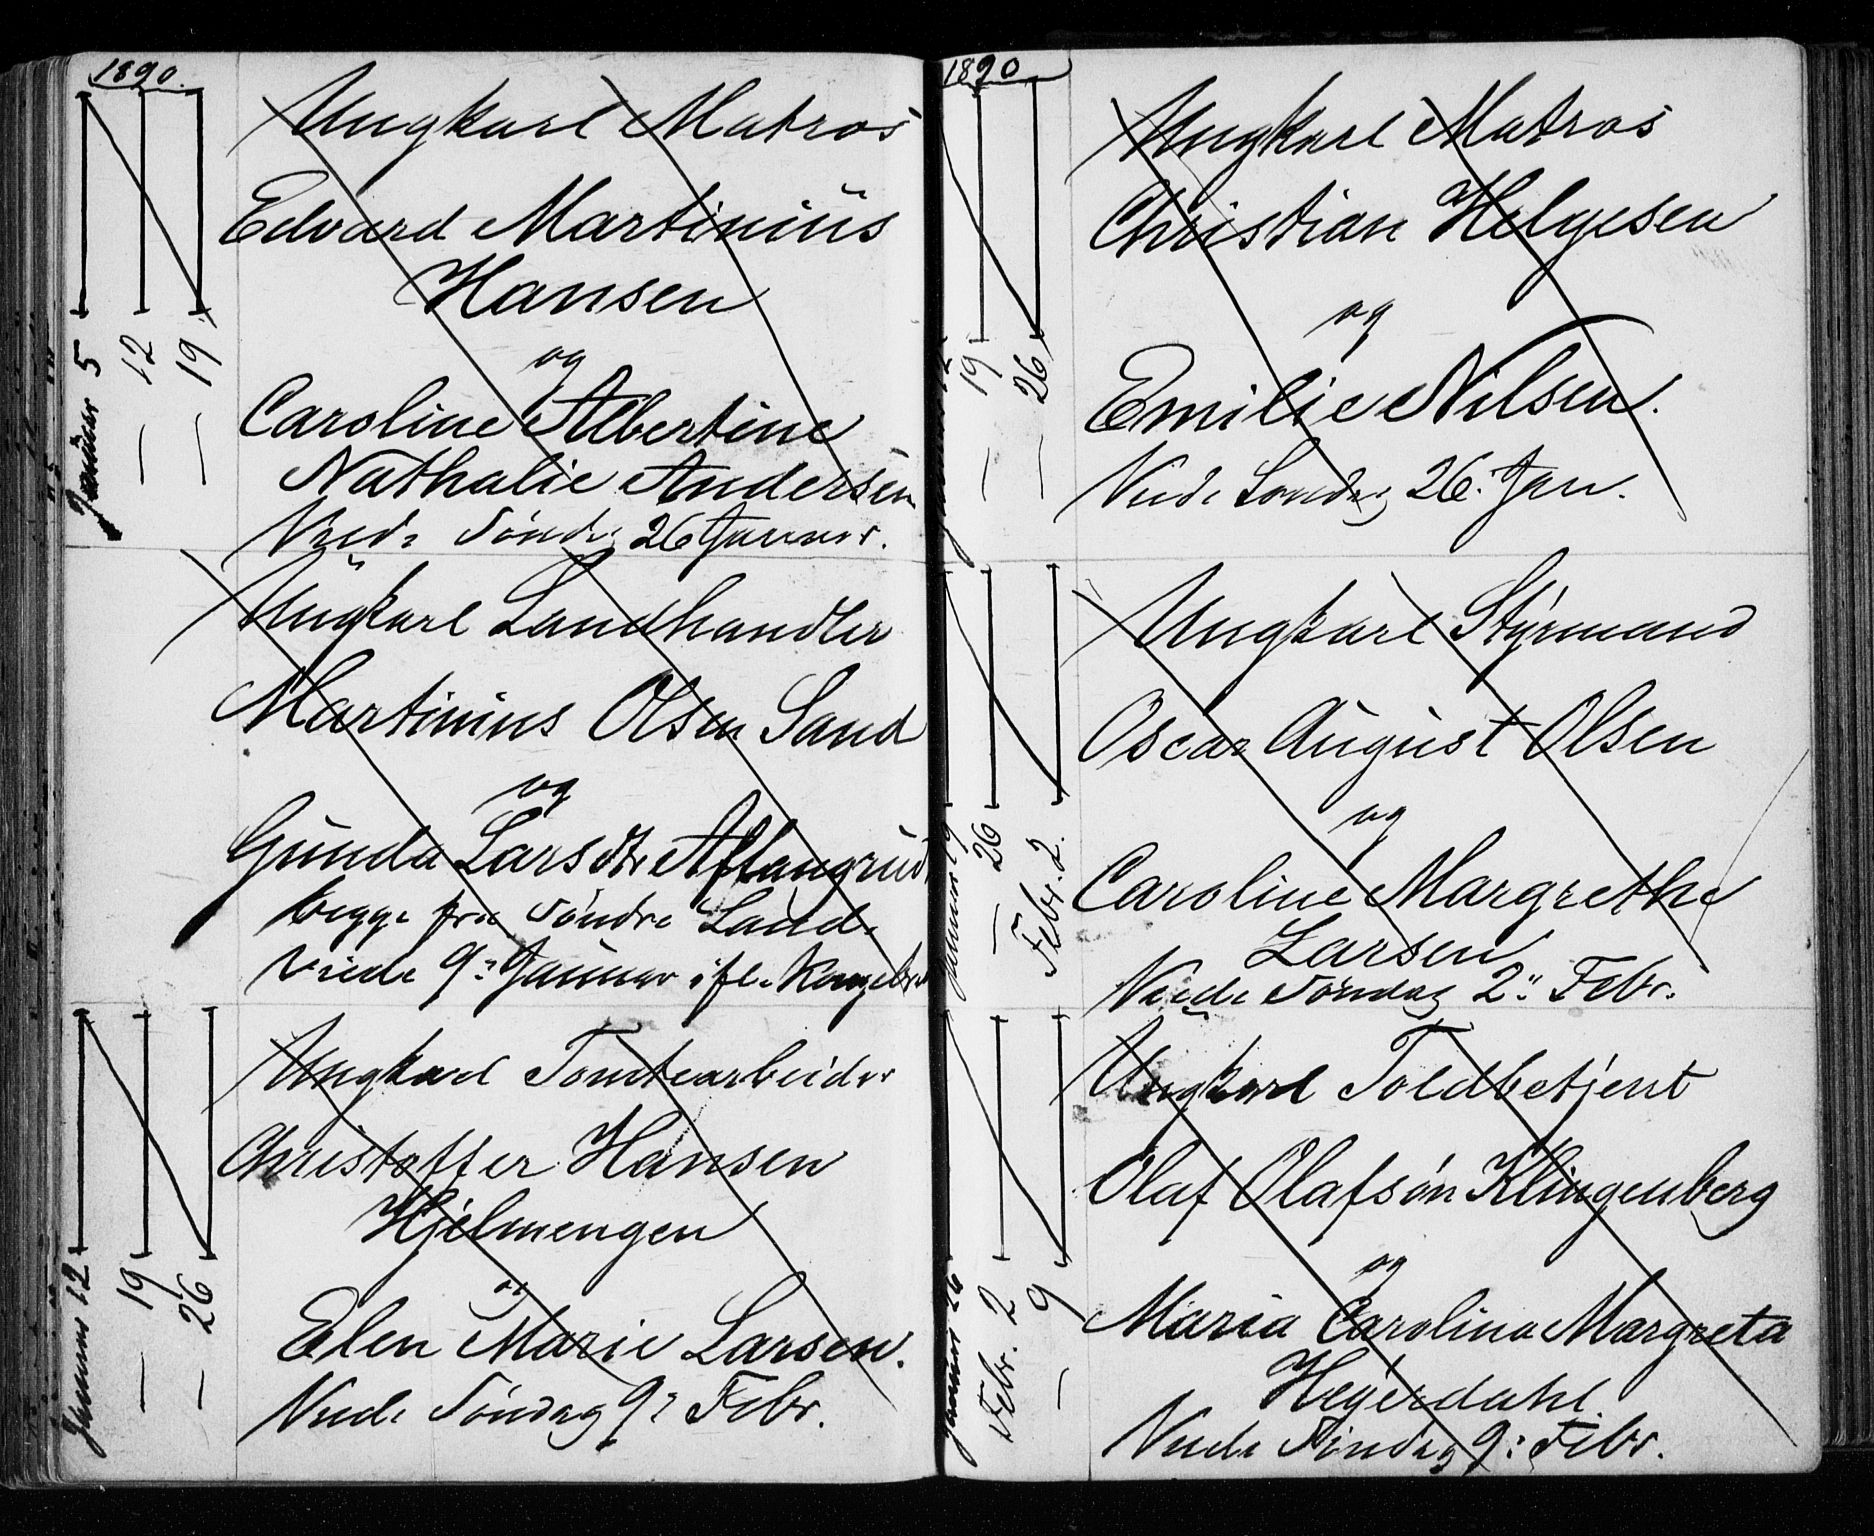 1890.
Januar 5
— 12
— 19
Ungkarl Matros
Edvard Martinius
Hansen
og
Caroline Albertine
Nathalie Andersen
Viede Søndag 26 Januar.
Ungkarl Landhandler
Martinius Olsen Sand
og
Gunda Larsdtr
begge fra Søndre Land.
Viede 9: Januar ifl.
Januar 12
— 19
— 26
Ungkarl Tomtearbeider
Christoffer Hansen
Hjelmengen
og
Elen Marie Larsen.
Viede Søndag 9: Febr.
1890
— 19
— 26
Ungkarl Matros
Christian Helgesen
og
Emilie Nilsen.
Viede Søndag 26. Jan.
Januar 19
— 26
Febr. 2.
Ungkarl Styrmand
Oscar August Olsen
og
Caroline Margrethe
Larsen
Viede Søndag 2: Febr.
Januar 26
Febr. 2
— 9
Ungkarl Toldbetjent
Olaf Olafsøn Klingenberg
og
Maria Carolina Margreta
Heyerdahl.
Viede Søndag 9: Febr.